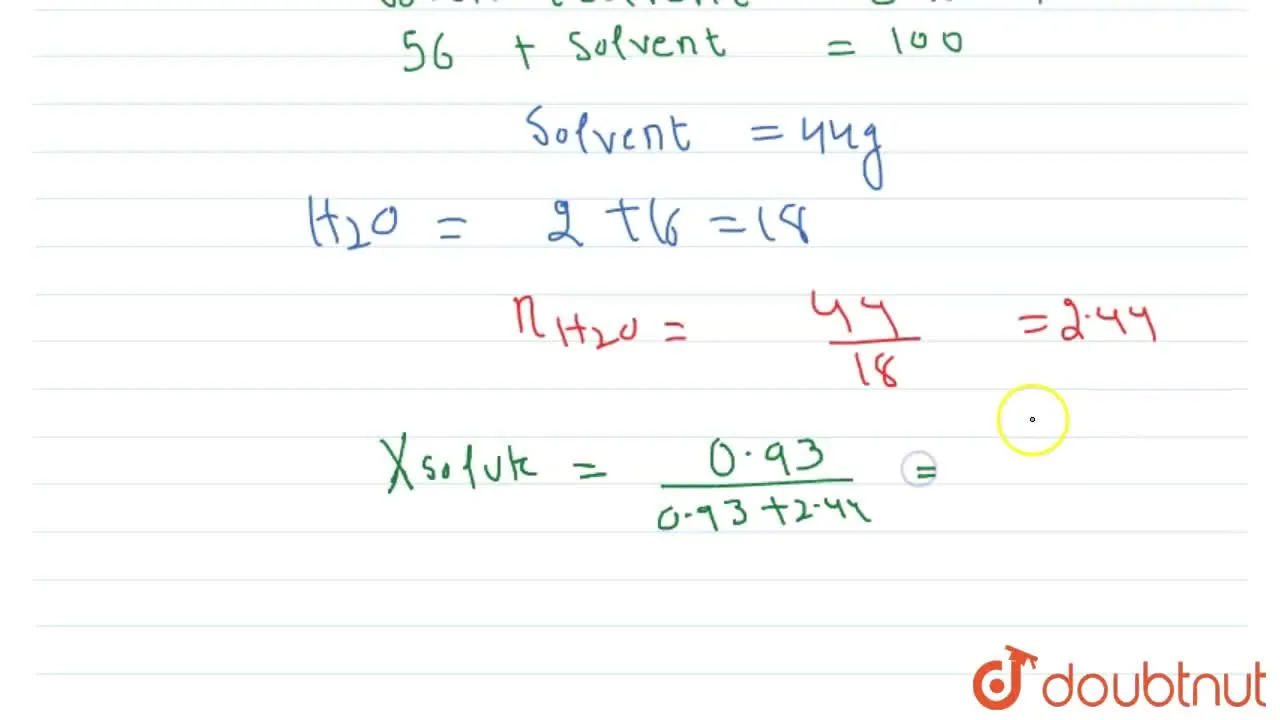 56 + Solvent = 100
Solvent = 44g
H2O = 2 + 16 = 18
nH2O = 44/18 = 2.44
Xsolute = 0.93/0.93+2.44 =
doubtnut